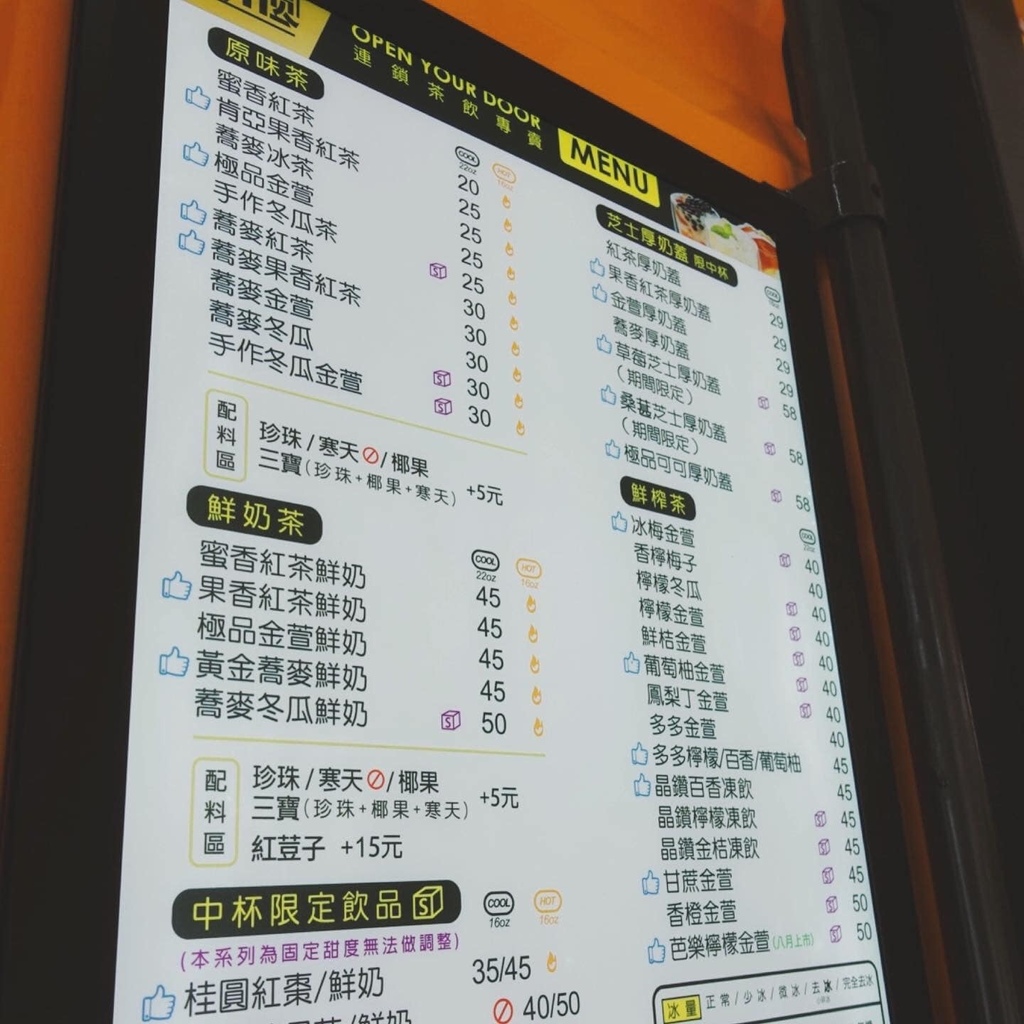 OPEN YOUR DOOR
連鎖茶飲專賣
MENU
原味茶
COOL 22oz HOT 16oz
蜜香紅茶 20
肯亞果香紅茶 25
蕎麥冰茶 25
極品金萱 25
手作冬瓜茶 ST 25
蕎麥紅茶 30
蕎麥果香紅茶 30
蕎麥金萱 30
蕎麥冬瓜 ST 30
手作冬瓜金萱 ST 30
配料區
珍珠/寒天/椰果
三寶(珍珠+椰果+寒天) +5元
鮮奶茶
COOL 22oz HOT 16oz
蜜香紅茶鮮奶 45
果香紅茶鮮奶 45
極品金萱鮮奶 45
黃金蕎麥鮮奶 45
蕎麥冬瓜鮮奶 ST 50
配料區
珍珠/寒天/椰果
三寶(珍珠+椰果+寒天) +5元
紅荳子 +15元
中杯限定飲品 ST
COOL 16oz HOT 16oz
(本系列為固定甜度無法做調整)
桂圓紅棗/鮮奶 35/45
/鮮奶 40/50
芝士厚奶蓋 限中杯
COOL
紅茶厚奶蓋 29
果香紅茶厚奶蓋 29
金萱厚奶蓋 29
蕎麥厚奶蓋 29
草莓芝士厚奶蓋 ST 58
(期間限定)
桑葚芝士厚奶蓋 ST 58
(期間限定)
極品可可厚奶蓋 ST 58
鮮榨茶
COOL 22oz
冰梅金萱 ST 40
香檸梅子 40
檸檬冬瓜 ST 40
檸檬金萱 ST 40
鮮桔金萱 ST 40
葡萄柚金萱 ST 40
鳳梨丁金萱 ST 40
多多金萱 40
多多檸檬/百香/葡萄柚 45
晶鑽百香凍飲 45
晶鑽檸檬凍飲 ST 45
晶鑽金桔凍飲 ST 45
甘蔗金萱 ST 45
香橙金萱 ST 50
芭樂檸檬金萱(八月上市) ST 50
冰量 正常/少冰/微冰/去冰/完全去冰